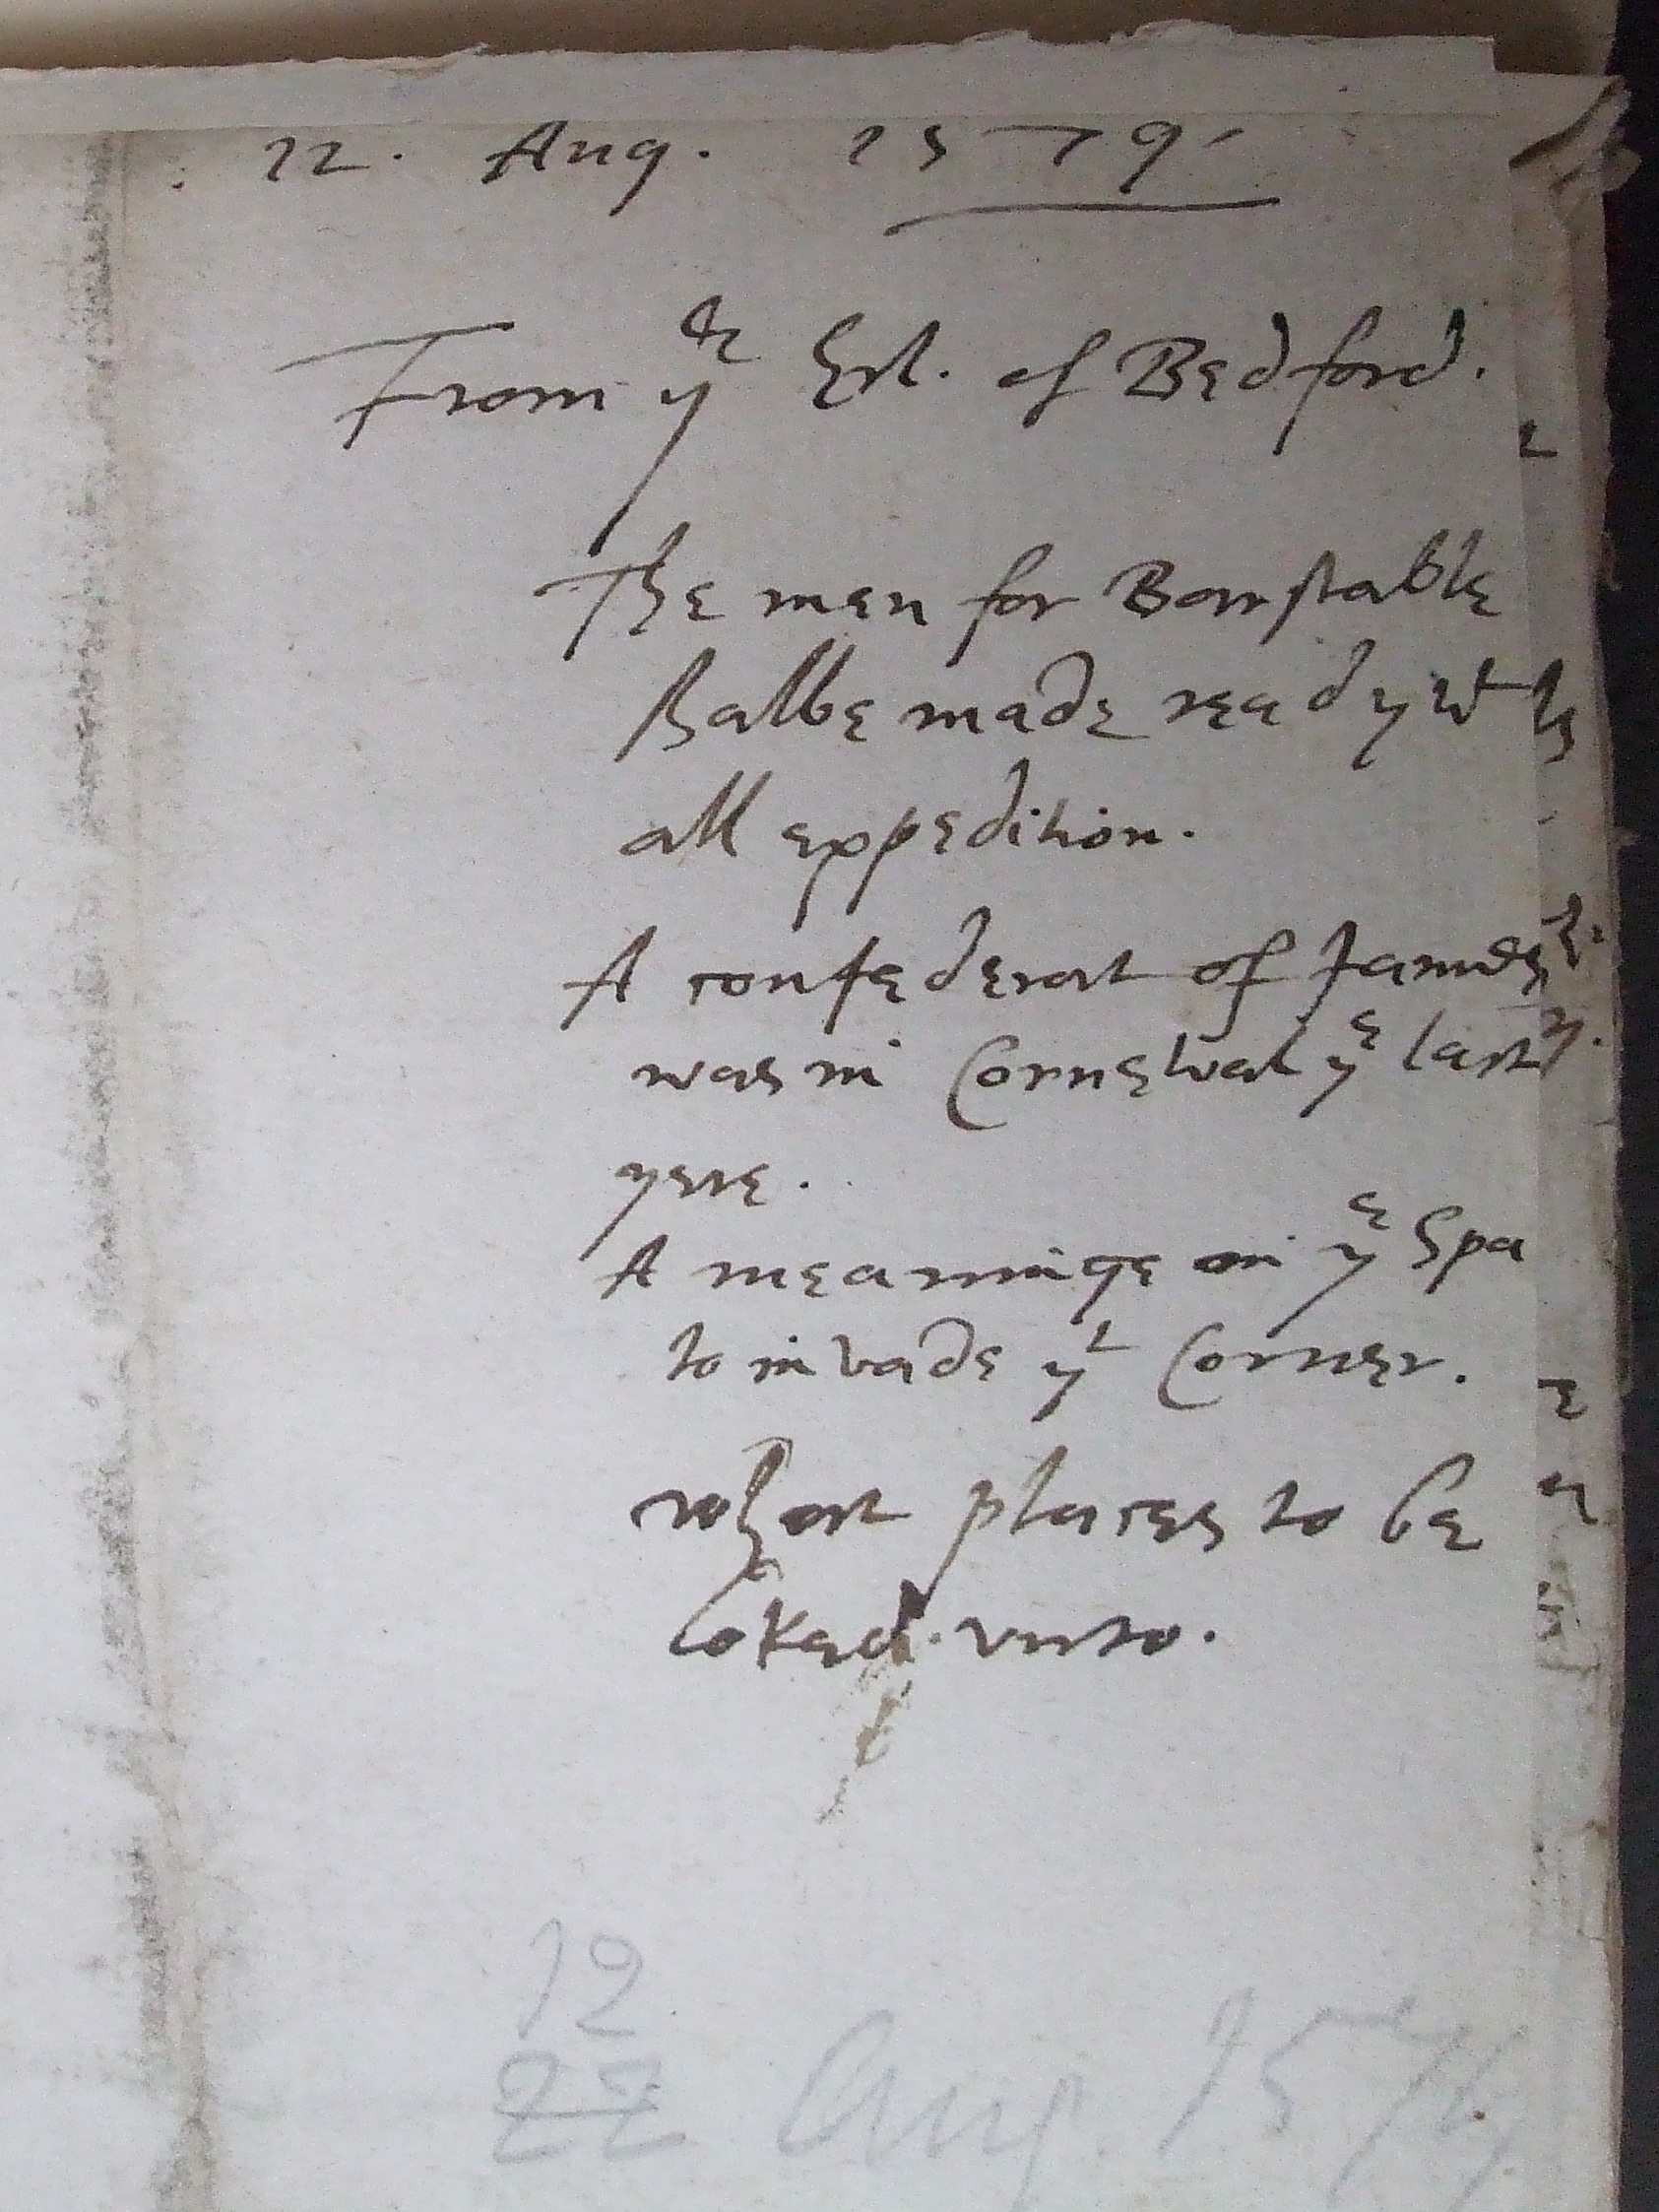 12. Aug. 1579.
From ye Erl. of Bedford.
The men for Barnstable
shalbe made ready wt
all expedition.
A confederat of James
was in Cornewal ye last
yere.
A meaninge in ye Spa
to invade yt Corner.
what places to be
loked unto.
12
22 Aug. 1579